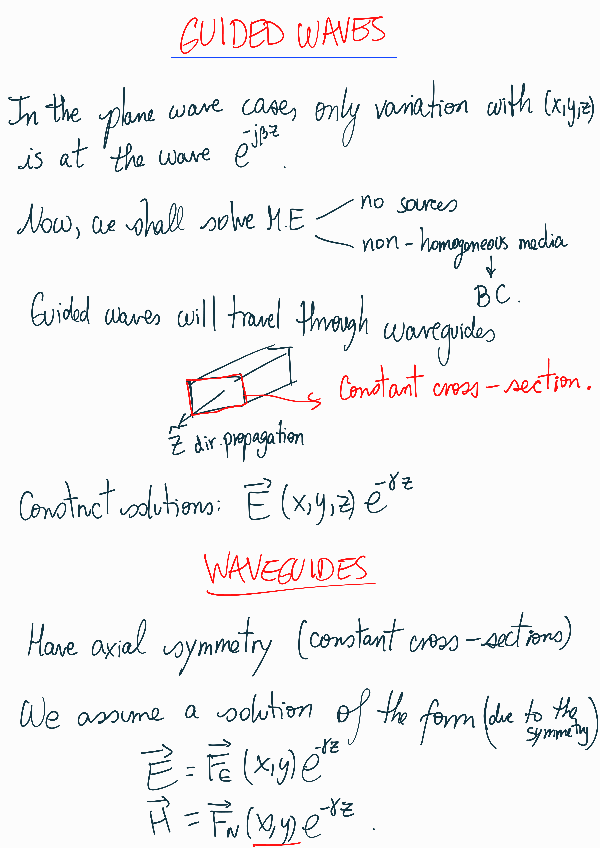 GUIDED WAVES
In the plane wave case, only variation with (x,y,z)
is at the wave e^{-jβz}.
Now, we shall solve M.E
no sources
non-homogeneous media
↓
BC.
Guided waves will travel through waveguides
Constant cross-section.
z dir. propagation
Construct solutions: E⃗ (x,y,z) e^{-γz}
WAVEGUIDES
Have axial symmetry (constant cross-sections)
We assume a solution of the form (due to the
symmetry)
E⃗ = F⃗_E (x,y) e^{-γz}
H⃗ = F⃗_N (x,y) e^{-γz}.